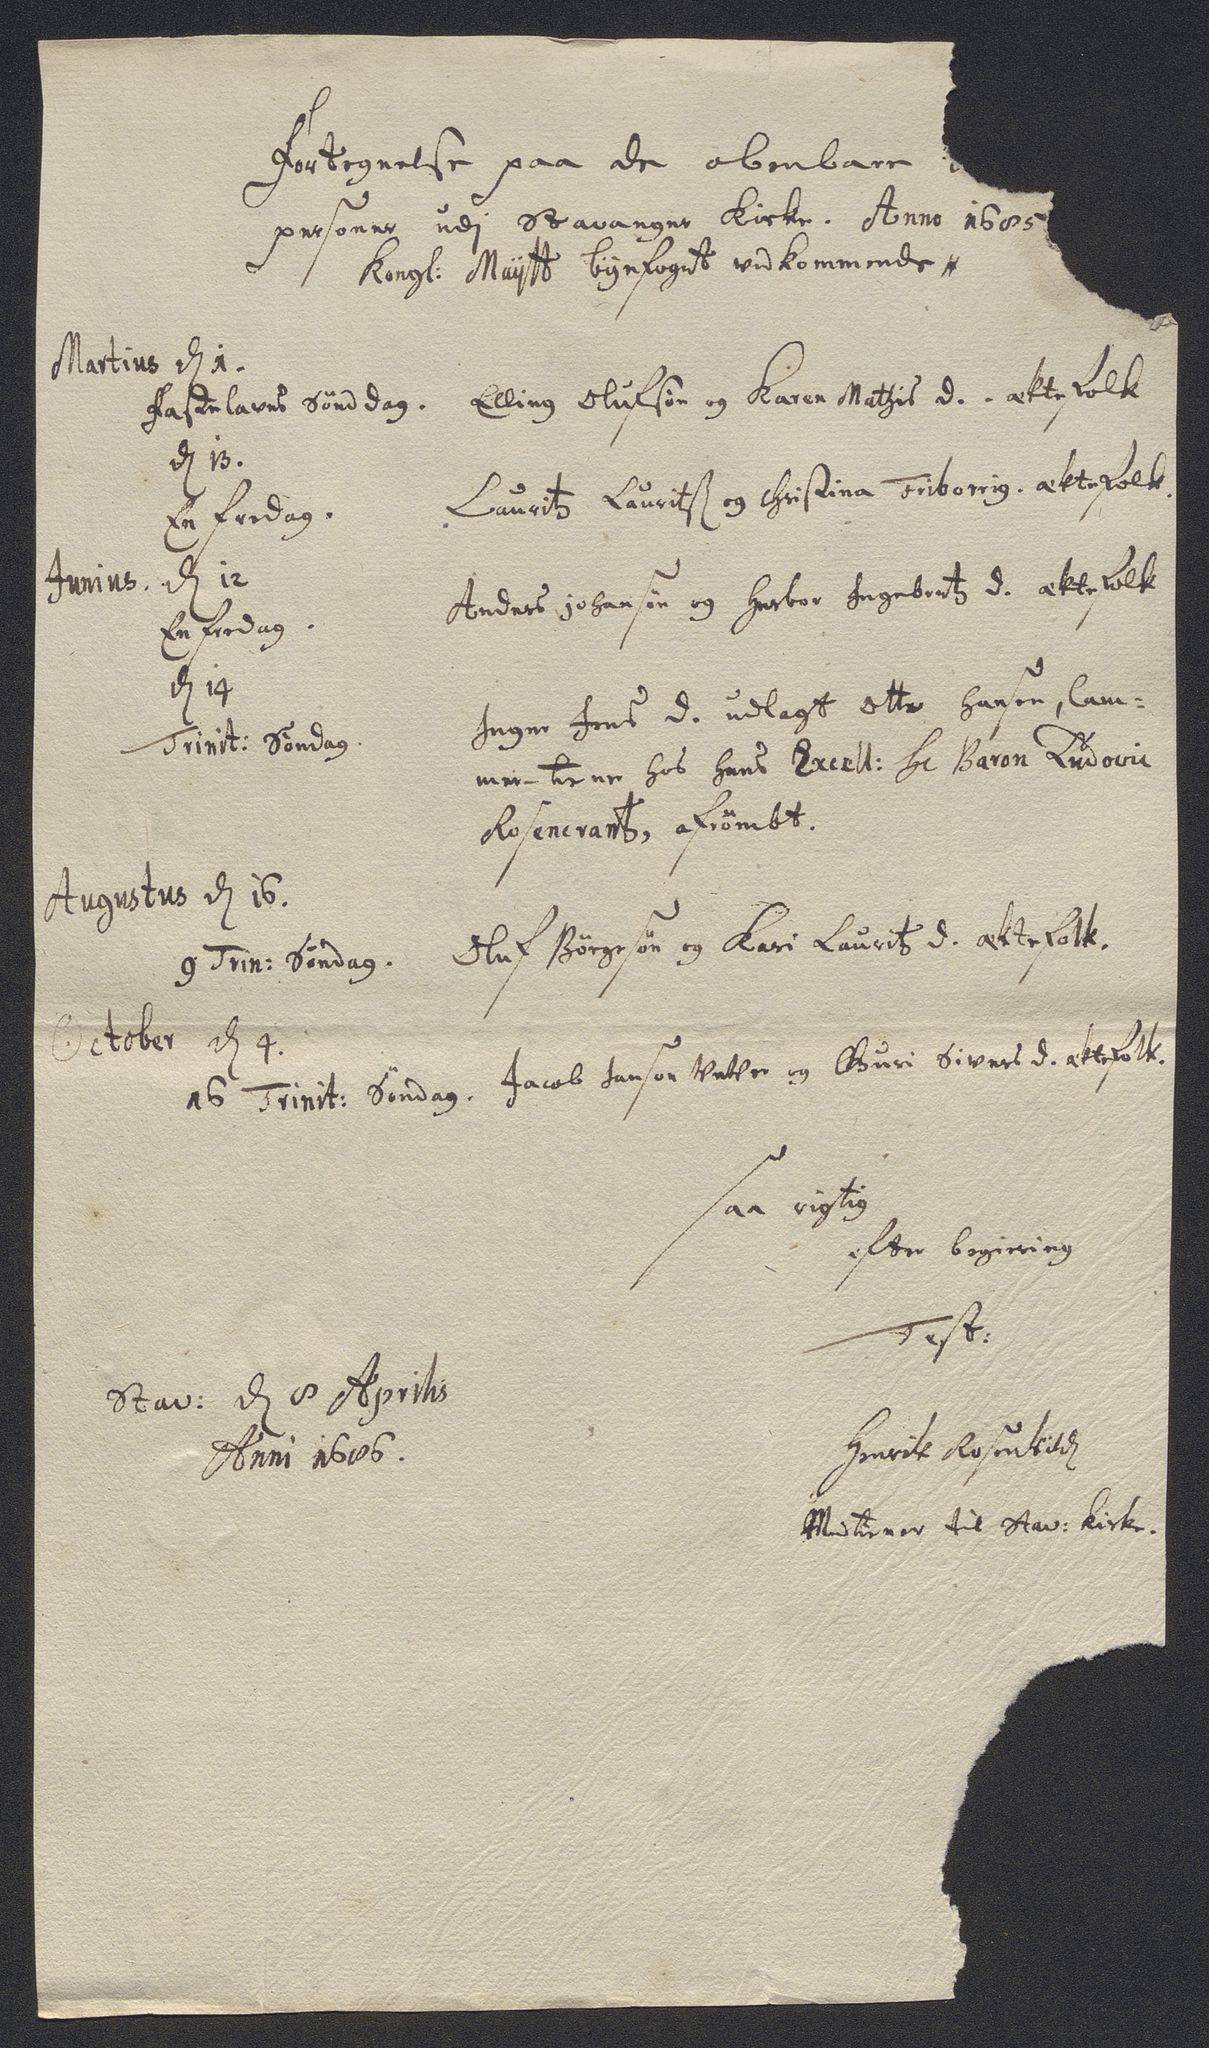 Fortegnelse paa de obenbare
personer udj Stavanger Kirke. Anno 1685
Kongl: Mayst byefogit vedkommende
Martius d 1.
Fastelavns Sønddag. Elling Olufsøn og Karen Mathis d. ækte folk
d 13.
En fredag. Lauritz Lauritzß og Christina Triborrig. ækte folk.
Junius. d 12
En fredag. Anders johansøn og Herbor Ingebertz d. ækte folk
d 14
Trinit: Søndag. Inger Jens d. udlagt Otto Hansen, Cam=
mer-tiener hos hans Excell: Hr Baron Ludovic
Rosencrantz, afrømbt.
Augustus d 16.
9 Trin: Søndag. Oluf Børgesøn og Kari Lauritz d. ækte folk.
October d 4.
16 Trinit: Søndag. Jacob Janson og Guri Sivers d. ækte folk.
saa rigtig
efter begiering
Test:
Stav: d 8 Aprilis
Anni 1686.
Henrik Rosenkildj
Medtiener til Stav: kirke.